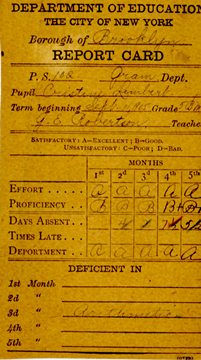 DEPARTMENT OF EDUCATION
THE CITY OF NEW YORK
Borough of Brooklyn
REPORT CARD
P. S. 162 Gram. Dept.
Pupil Lambert
Term beginning Sept. Grade
J. E. Robertson Teacher
SATISFACTORY: A—EXCELLENT; B—GOOD.
UNSATISFACTORY: C—POOR; D—BAD.
MONTHS
1st 2d 3d 4th 5th
EFFORT A A A A
PROFICIENCY B B B B+
DAYS ABSENT
TIMES LATE
DEPORTMENT A A A A
DEFICIENT IN
1st Month
2d "
3d " Arithmetic
4th "
5th "
(OVER)